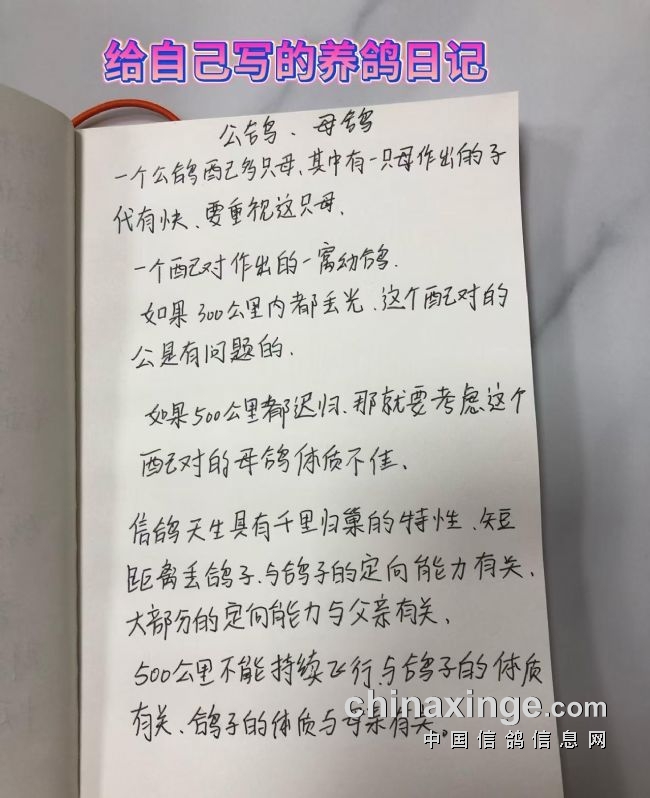 给自己写的养鸽日记
公鸽、母鸽
一个公鸽配多只母、其中有一只母作出的子
代有快、要重视这只母、
一个配对作出的一窝幼鸽、
如果300公里内都丢光、这个配对的
公是有问题的、
如果500公里都迟归、那就要考虑这个
配对的母鸽体质不佳、
信鸽天生具有千里归巢的特性、短
距离丢鸽子、与鸽子的定向能力有关、
大部分的定向能力与父亲有关、
500公里不能持续飞行、与鸽子的体质
有关、鸽子的体质与母亲有关。
chinaxinge.com
中国信鸽信息网